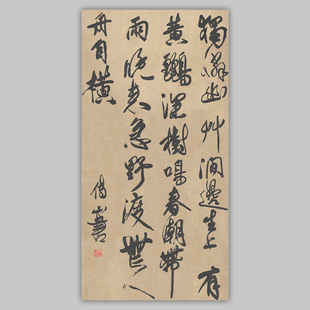 獨憐幽艸澗邊生上有
黃鸝深樹鳴春潮帶
雨晚來急野渡無人
舟自橫